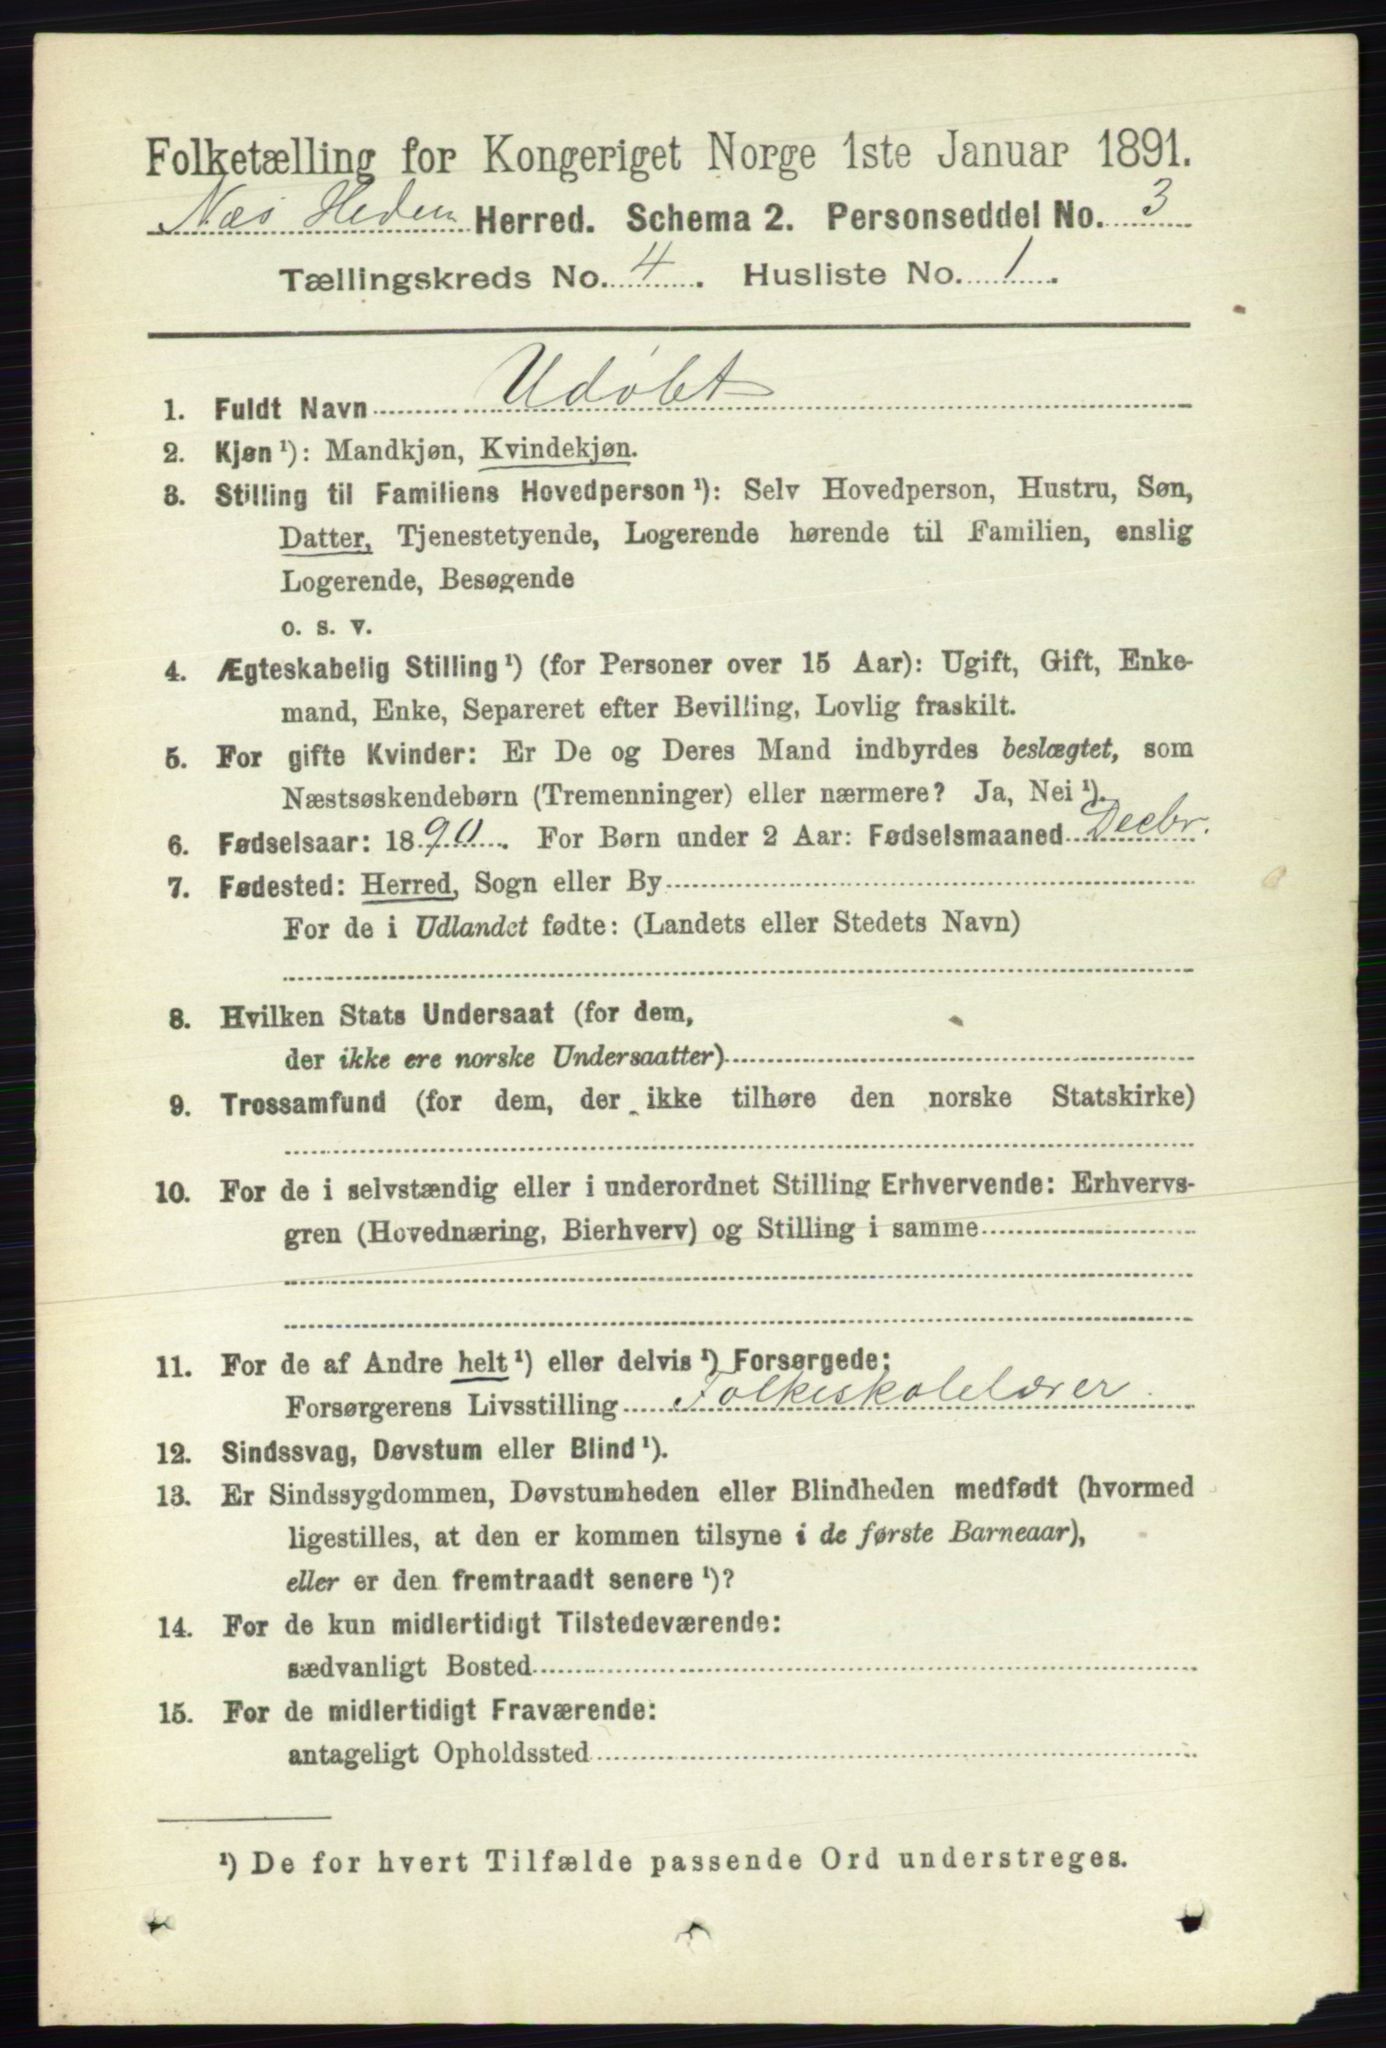 Folketælling for Kongeriget Norge 1ste Januar 1891.
Næs Hedem Herred. Schema 2. Personseddel No. 3
Tællingskreds No. 4. Husliste No. 1.
1. Fuldt Navn Udøbt
2. Kjøn ¹): Mandkjøn, Kvindekjøn.
3. Stilling til Familiens Hovedperson ¹): Selv Hovedperson, Hustru, Søn,
Datter, Tjenestetyende, Logerende hørende til Familien, enslig
Logerende, Besøgende
o. s. v.
4. Ægteskabelig Stilling ¹) (for Personer over 15 Aar): Ugift, Gift, Enke-
mand, Enke, Separeret efter Bevilling, Lovlig fraskilt.
5. For gifte Kvinder: Er De og Deres Mand indbyrdes beslægtet, som
Næstsøskendebørn (Tremenninger) eller nærmere? Ja, Nei ¹).
6. Fødselsaar: 1890. For Børn under 2 Aar: Fødselsmaaned Decbr.
7. Fødested: Herred, Sogn eller By
For de i Udlandet fødte: (Landets eller Stedets Navn)
8. Hvilken Stats Undersaat (for dem,
der ikke ere norske Undersaatter)
9. Trossamfund (for dem, der ikke tilhøre den norske Statskirke)
10. For de i selvstændig eller i underordnet Stilling Erhvervende: Erhvervs-
gren (Hovednæring, Bierhverv) og Stilling i samme
11. For de af Andre helt ¹) eller delvis ¹) Forsørgede:
Forsørgerens Livsstilling Folkeskolelærer.
12. Sindssvag, Døvstum eller Blind ¹).
13. Er Sindssygdommen, Døvstumheden eller Blindheden medfødt (hvormed
ligestilles, at den er kommen tilsyne i de første Barneaar),
eller er den fremtraadt senere ¹)?
14. For de kun midlertidigt Tilstedeværende:
sædvanligt Bosted
15. For de midlertidigt Fraværende:
antageligt Opholdssted
¹) De for hvert Tilfælde passende Ord understreges.